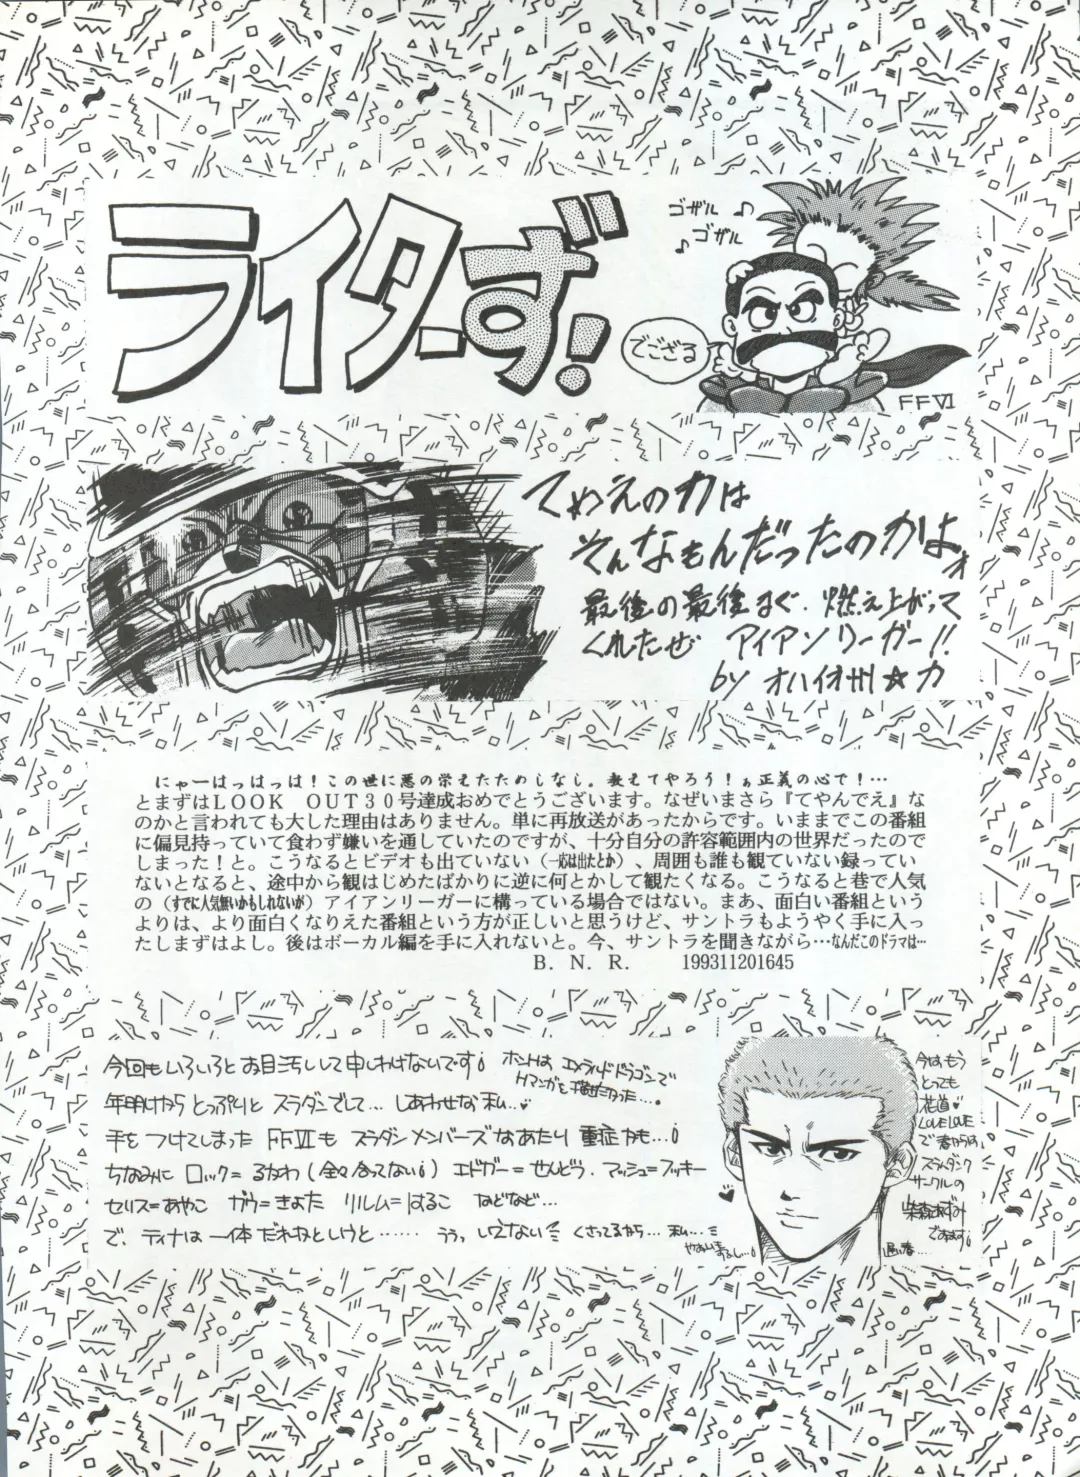 ライターず!
ゴザル♪
♪ゴザル
でござる
FFVI
てめえの力は
そんなもんだったのかよォ
最後の最後まで、燃え上がって
くれたぜ アイアンリーガー!!
by オハイオ州☆力
にゃーはっはっは!この世に悪の栄えたためしなし。教えてやろう!ぁ正義の心で!…
とまずはLOOK OUT30号達成おめでとうございます。なぜいまさら『てやんでえ』な
のかと言われても大した理由はありません。単に再放送があったからです。いままでこの番組
に偏見持っていて食わず嫌いを通していたのですが、十分自分の許容範囲内の世界だったので
しまった!と。こうなるとビデオも出ていない(一応は出たとか)、周囲も誰も観ていない録ってい
ないとなると、途中から観はじめたばかりに逆に何とかして観たくなる。こうなると巷で人気
の(すでに人気無いかもしれないが)アイアンリーガーに構っている場合ではない。まあ、面白い番組という
よりは、より面白くなりえた番組という方が正しいと思うけど、サントラもようやく手に入っ
たしまずはよし。後はボーカル編を手に入れないと。今、サントラを聞きながら…なんだこのドラマは…
B. N. R. 199311201645
今回もいろいろとお目汚しして申しわけないです!
ホントは エメラルドドラゴンで
マンガを描きたかった…。
年明けから とっぷりと スラダンでして… しあわせな私…♥
手をつけてしまった FFVIも スラダンメンバーズなあたり 重症かも…!
ちなみに ロック=るかわ(全々合ってない!) エドガー=せんどう.マッシュ=フッキー
セリス=あやこ ガウ=きよた リルム=はるこ などなど…
で、ティナは一体だれかなとしうと…… ううっ いえない くさってるから… 私…
今はもう
とっても
花道♥
LOVELOVE
で
スラムダンク
サークルの
柴森あずみ
であります!